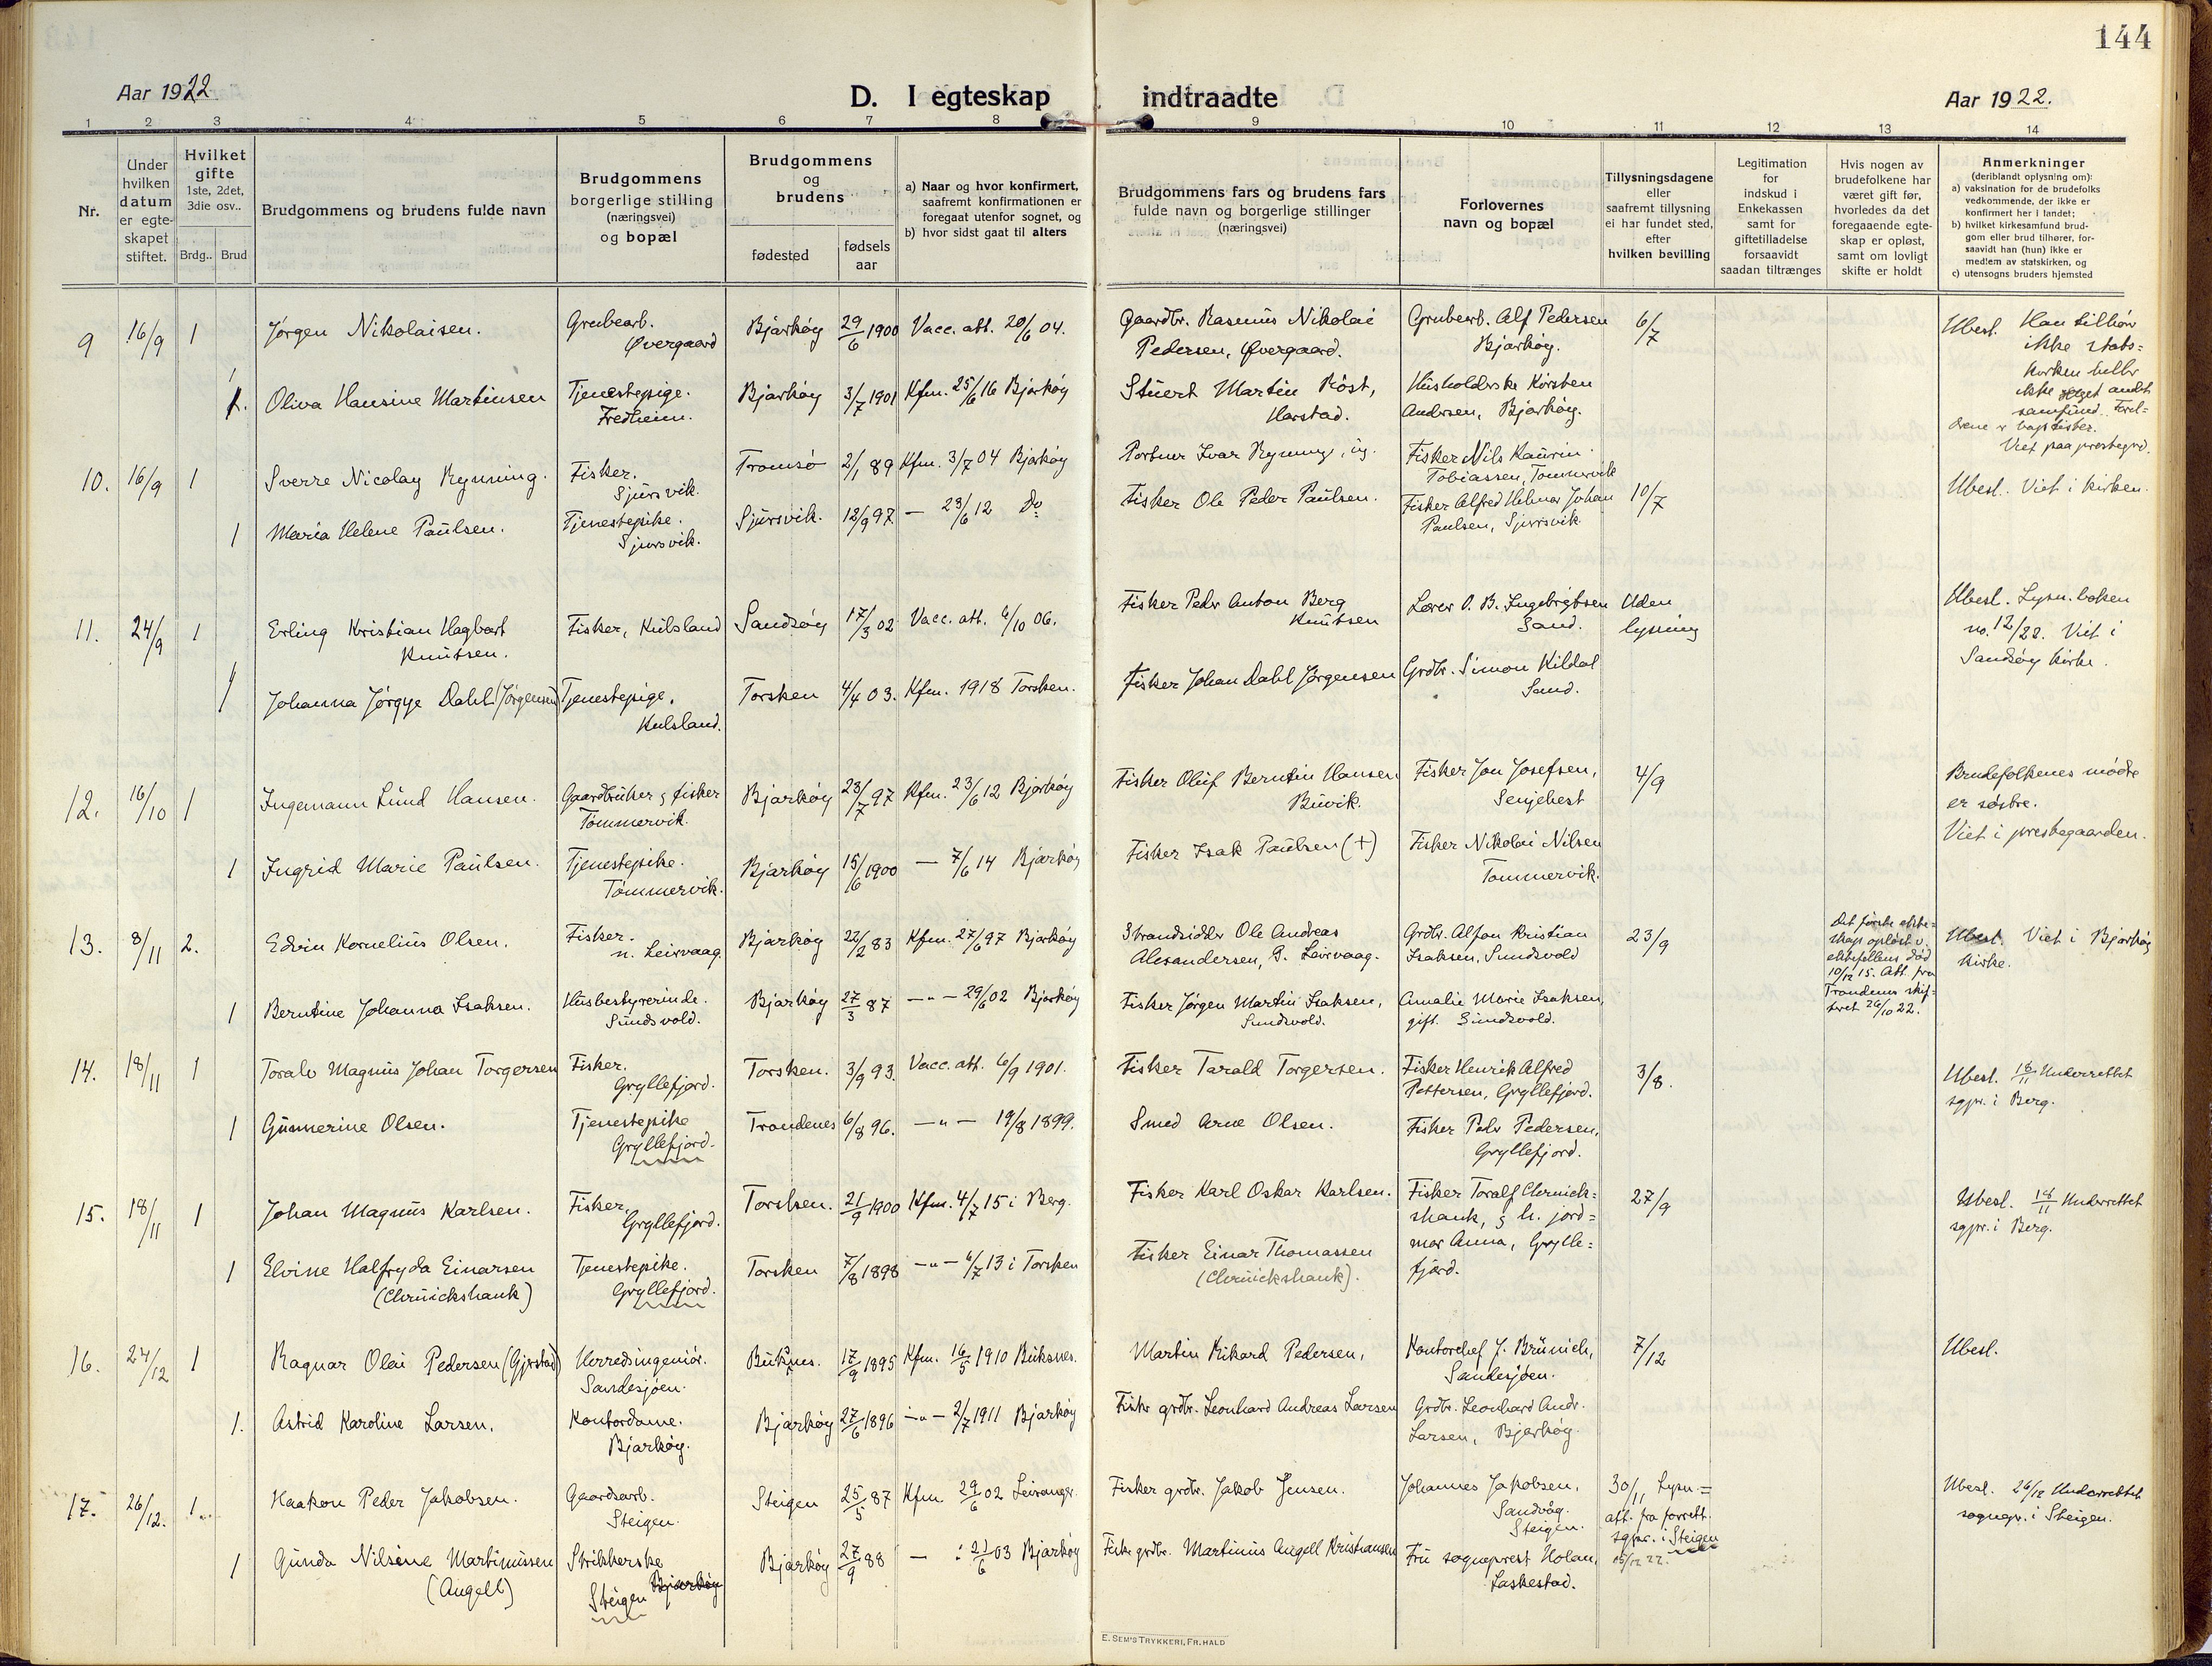 144
Aar 1922.
D. I egteskap
indtraadte
Aar 1922.
1 2 3 4 5 6 7 8 9 10 11 12 13 14
Nr.
Under
hvilken
datum
er egte-
skapet
stiftet.
Hvilket
gifte
1ste, 2det,
3die osv..
Brdg..
Brud
Brudgommens og brudens fulde navn
Brudgommens
borgerlige stilling
(næringsvei)
og bopæl
Brudgommens
og
brudens
fødested
fødsels
aar
a) Naar og hvor konfirmert,
saafremt konfirmationen er
foregaat utenfor sognet, og
b) hvor sidst gaat til alters
Brudgommens fars og brudens fars
fulde navn og borgerlige stillinger
(næringsvei)
Forlovernes
navn og bopæl
Tillysningsdagene
eller
saafremt tillysning
ei har fundet sted,
efter
hvilken bevilling
Legitimation
for
indskud i
Enkekassen
samt for
giftetilladelse
forsaavidt
saadan tiltrænges
Hvis nogen av
brudefolkene har
været gift før,
hvorledes da det
foregaaende egte-
skap er opløst,
samt om lovligt
skifte er holdt
Anmerkninger
(deriblandt oplysning om):
a) vaksination for de brudefolks
vedkommende, der ikke er
konfirmert her i landet;
b) hvilket kirkesamfund brud-
gom eller brud tilhører, for-
saavidt han (hun) ikke er
medlem av statskirken, og
c) utensogns bruders hjemsted
9
16/9
1
Jørgen Nikolaisen.
Grubearb.
Øvergaard
Bjarkøy
29/6 1900
Vacc. att. 20/6 04.
Gaardbr. Rasmus Nikolai
Pedersen, Øvergaard.
Grubearb. Alf Pedersen
Bjarkøy.
6/7
Ubesl. Han tilhör
ikke stats=
kirken heller
ikke noget andet
samfund. Forel=
drene er baptister.
Viet paa prestegrd.
1.
Oliva Hansine Martinsen
Tjenestepige.
Fredheim.
Bjarkøy
3/7 1901
Kfm. 25/6 16 Bjarkøy
Stuert Martin Röst,
Harstad.
Husholderske Kirsten
Andersen, Bjarkøy.
10.
16/9
1
Sverre Nicolay Rynning.
Fisker.
Sjursvik.
Tromsø
2/1 89
Kfm. 3/7 04 Bjarkøy
Portner Ivar Rynning, ug.
Fisker Nils Kaurin
Tobiassen, Tommervik
10/7
Ubesl. Viet i kirken.
1
Maria Helene Paulsen.
Tjenestepike.
Sjursvik.
Sjursvik.
12/9 97
— 23/6 12 Do
Fisker Ole Peder Paulsen.
Fisker Alfred Helmer Johan
Paulsen, Sjursvik.
11.
24/9
1
Erling Kristian Hagbart
Knutsen.
Fisker, Kulsland
Sandsøy
17/3 02
Vacc. att. 6/10 06.
Fisker Peder Anton Berg
Knutsen
Lærer O. B. Ingebrigtsen
Sand.
Uden
lysning
Ubesl. Lysn. boken
no. 12/22. Viet i
Sandsøy kirke.
1
Johanna Jørgye Dahl (Jørgensen)
Tjenestepige,
Kulsland.
Torsken
4/4 03.
Kfm. 1918 Torsken.
Fisker Johan Dahl Jørgensen
Grdbr. Simon Kildal
Sand.
12.
16/10
1
Ingemann Lund Hansen.
Gaardbruker & fisker
Tömmervik.
Bjarkøy
23/7 97
Kfm. 23/6 12 Bjarkøy
Fisker Oluf Berntin Hansen
Buvik.
Fisker Jon Josefsen,
Senjehest
4/9
Brudefolkenes mødre
er søstre.
Viet i prestegaarden.
1
Ingrid Marie Paulsen.
Tjenestepike.
Tömmervik.
Bjarkøy
15/6 1900
— 7/6 14 Bjarkøy
Fisker Isak Paulsen (+)
Fisker Nikolai Nilsen
Tommervik.
13.
8/11
2.
Edvin Kornelius Olsen.
Fisker.
n. Leirvaag.
Bjarkøy
22/2 83
Kfm. 27/6 97 Bjarkøy
Strandsidder Ole Andreas
Alexandersen, G. Leirvaag.
Grdbr. Alfon Kristian
Isaksen, Sundsvold
23/9
Det første ekte=
skap opløst v.
ektefellens død
10/12 15. Att. fra
Trondenes skif-
teret 26/10 22.
Ubesl. Viet i Bjarkøy
kirke.
1
Berntine Johanna Isaksen.
Husbestyrerinde.
Sundsvold.
Bjarkøy
27/3 87
—"— 29/6 02 Bjarkøy
Fisker Jørgen Martin Isaksen,
Sundsvold.
Amalie Marie Isaksen,
gift. Sundsvold.
14.
18/11
1
Toralv Magnus Johan Torgersen
Fisker.
Gryllefjord.
Torsken.
3/9 93.
Vacc. att. 6/9 1901.
Fisker Tarald Torgersen.
Fisker Henrik Alfred
Pettersen, Gryllefjord.
3/8.
Ubesl. 18/11 Underrettet
sgpr. i Berg.
1
Gunnerine Olsen.
Tjenestepike
Gryllefjord.
Trondenes
6/8 96.
—"— 19/8 1899.
Smed Arne Olsen.
Fisker Peder Pedersen,
Gryllefjord.
15.
18/11
1
Johan Magnus Karlsen.
Fisker,
Gryllefjord.
Torsken.
21/9 1900
Kfm. 4/7 15 i Berg.
Fisker Karl Oskar Karlsen.
Fisker Toralf Cleruick=
shank, & h. jord=
mor Anna, Grylle=
fjord.
27/9
Ubesl. 18/11 Underrettet
sgpr. i Berg.
1
Elvine Halfryda Einarsen
(Cleruickshank)
Tjenestepike.
Gryllefjord.
Torsken
7/8 1898
—"— 6/7 13 i Torsken
Fisker Einar Thomassen
(Cleruickshank).
16.
24/12
1
Ragnar Olai Pedersen (Gjerstad)
Herredsingeniör.
Sandesjøen.
Buksnes.
17/9 1895
Kfm. 16/5 1910 Buksnes.
Martin Rikard Pedersen,
Kontorchef J. Brünich,
Sandesjøen.
7/12
Ubesl.
1.
Astrid Karoline Larsen.
Kontordame.
Bjarkøy.
Bjarkøy
27/6 1896
—"— 2/7 1911 Bjarkøy
Fisker grdbr. Leonhard Andreas Larsen
Grdbr. Leonhard Andr.
Larsen, Bjarkøy.
17.
26/12.
1.
Haakon Peder Jakobsen.
Gaardsarb.
Steigen.
Steigen
25/5 87
Kfm. 29/6 02 Leiranger.
Fisker grdbr. Jakob Jensen.
Johannes Jakobsen,
Sandvåg.
Steigen.
30/11 Lysn.=
att. fra forrett.
sgpr. i Steigen
15/12 22.
Ubesl. 26/12 Underrettet
sognepr. i Steigen.
1
Gunda Nilsine Martinussen
(Angell)
Strikkerske
Bjarkøy
Steigen
Bjarkøy
27/9 88
— : 21/6 03 Bjarkøy
Fisker grdbr. Martinus Angell Kristiansen
Fru sogneprest Holan,
Laskestad.
E. SEM'S TRYKKERI, FR. HALD